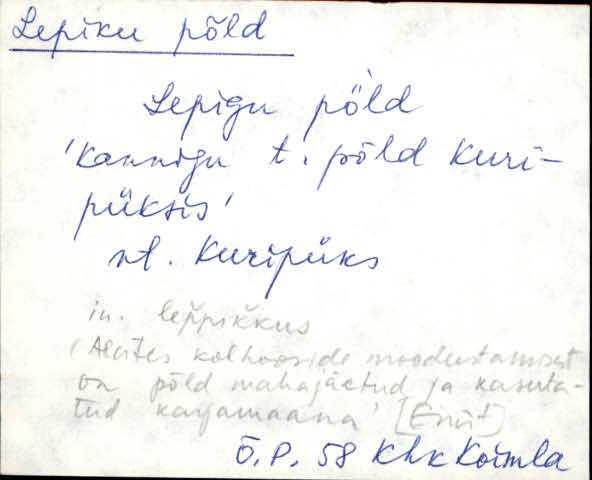 Lepiku põld
Lepigu põld
'Kannigu t. põld Kuri-
püksis'
vt. Kuripüks
in. leppikkus
'Alates kolhooside moodustamisest
on põld mahajäetud ja kasuta-
tud karjamaana'
Õ.P. 58 Khk Koimla